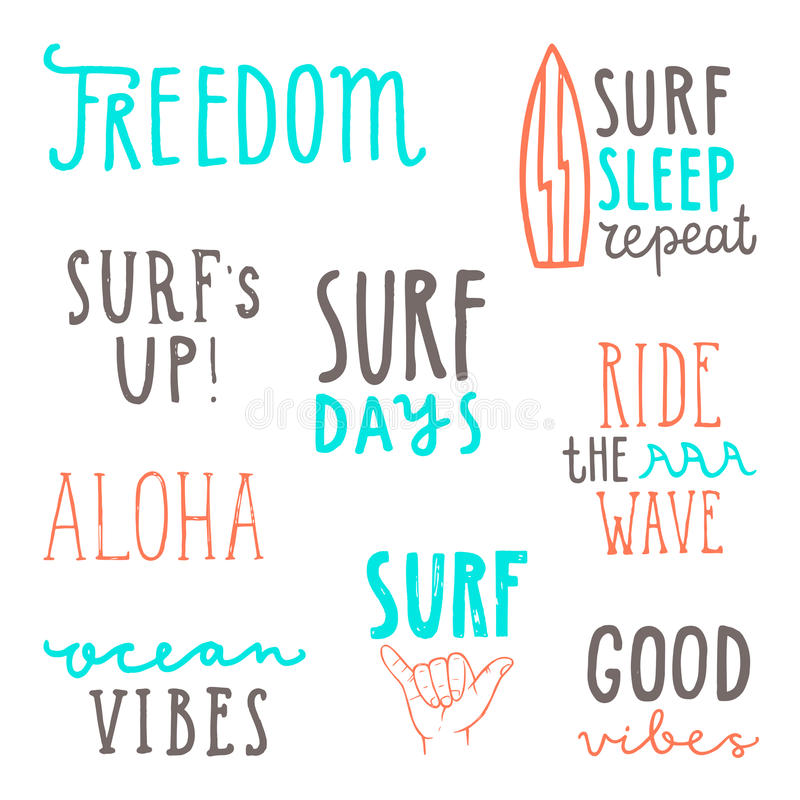 FREEDOM
SURF
SLEEP
repeat
SURF's
UP!
SURF
DAYS
RIDE
THE
WAVE
ALOHA
SURF
ocean
VIBES
GOOD
vibes
dreamstime